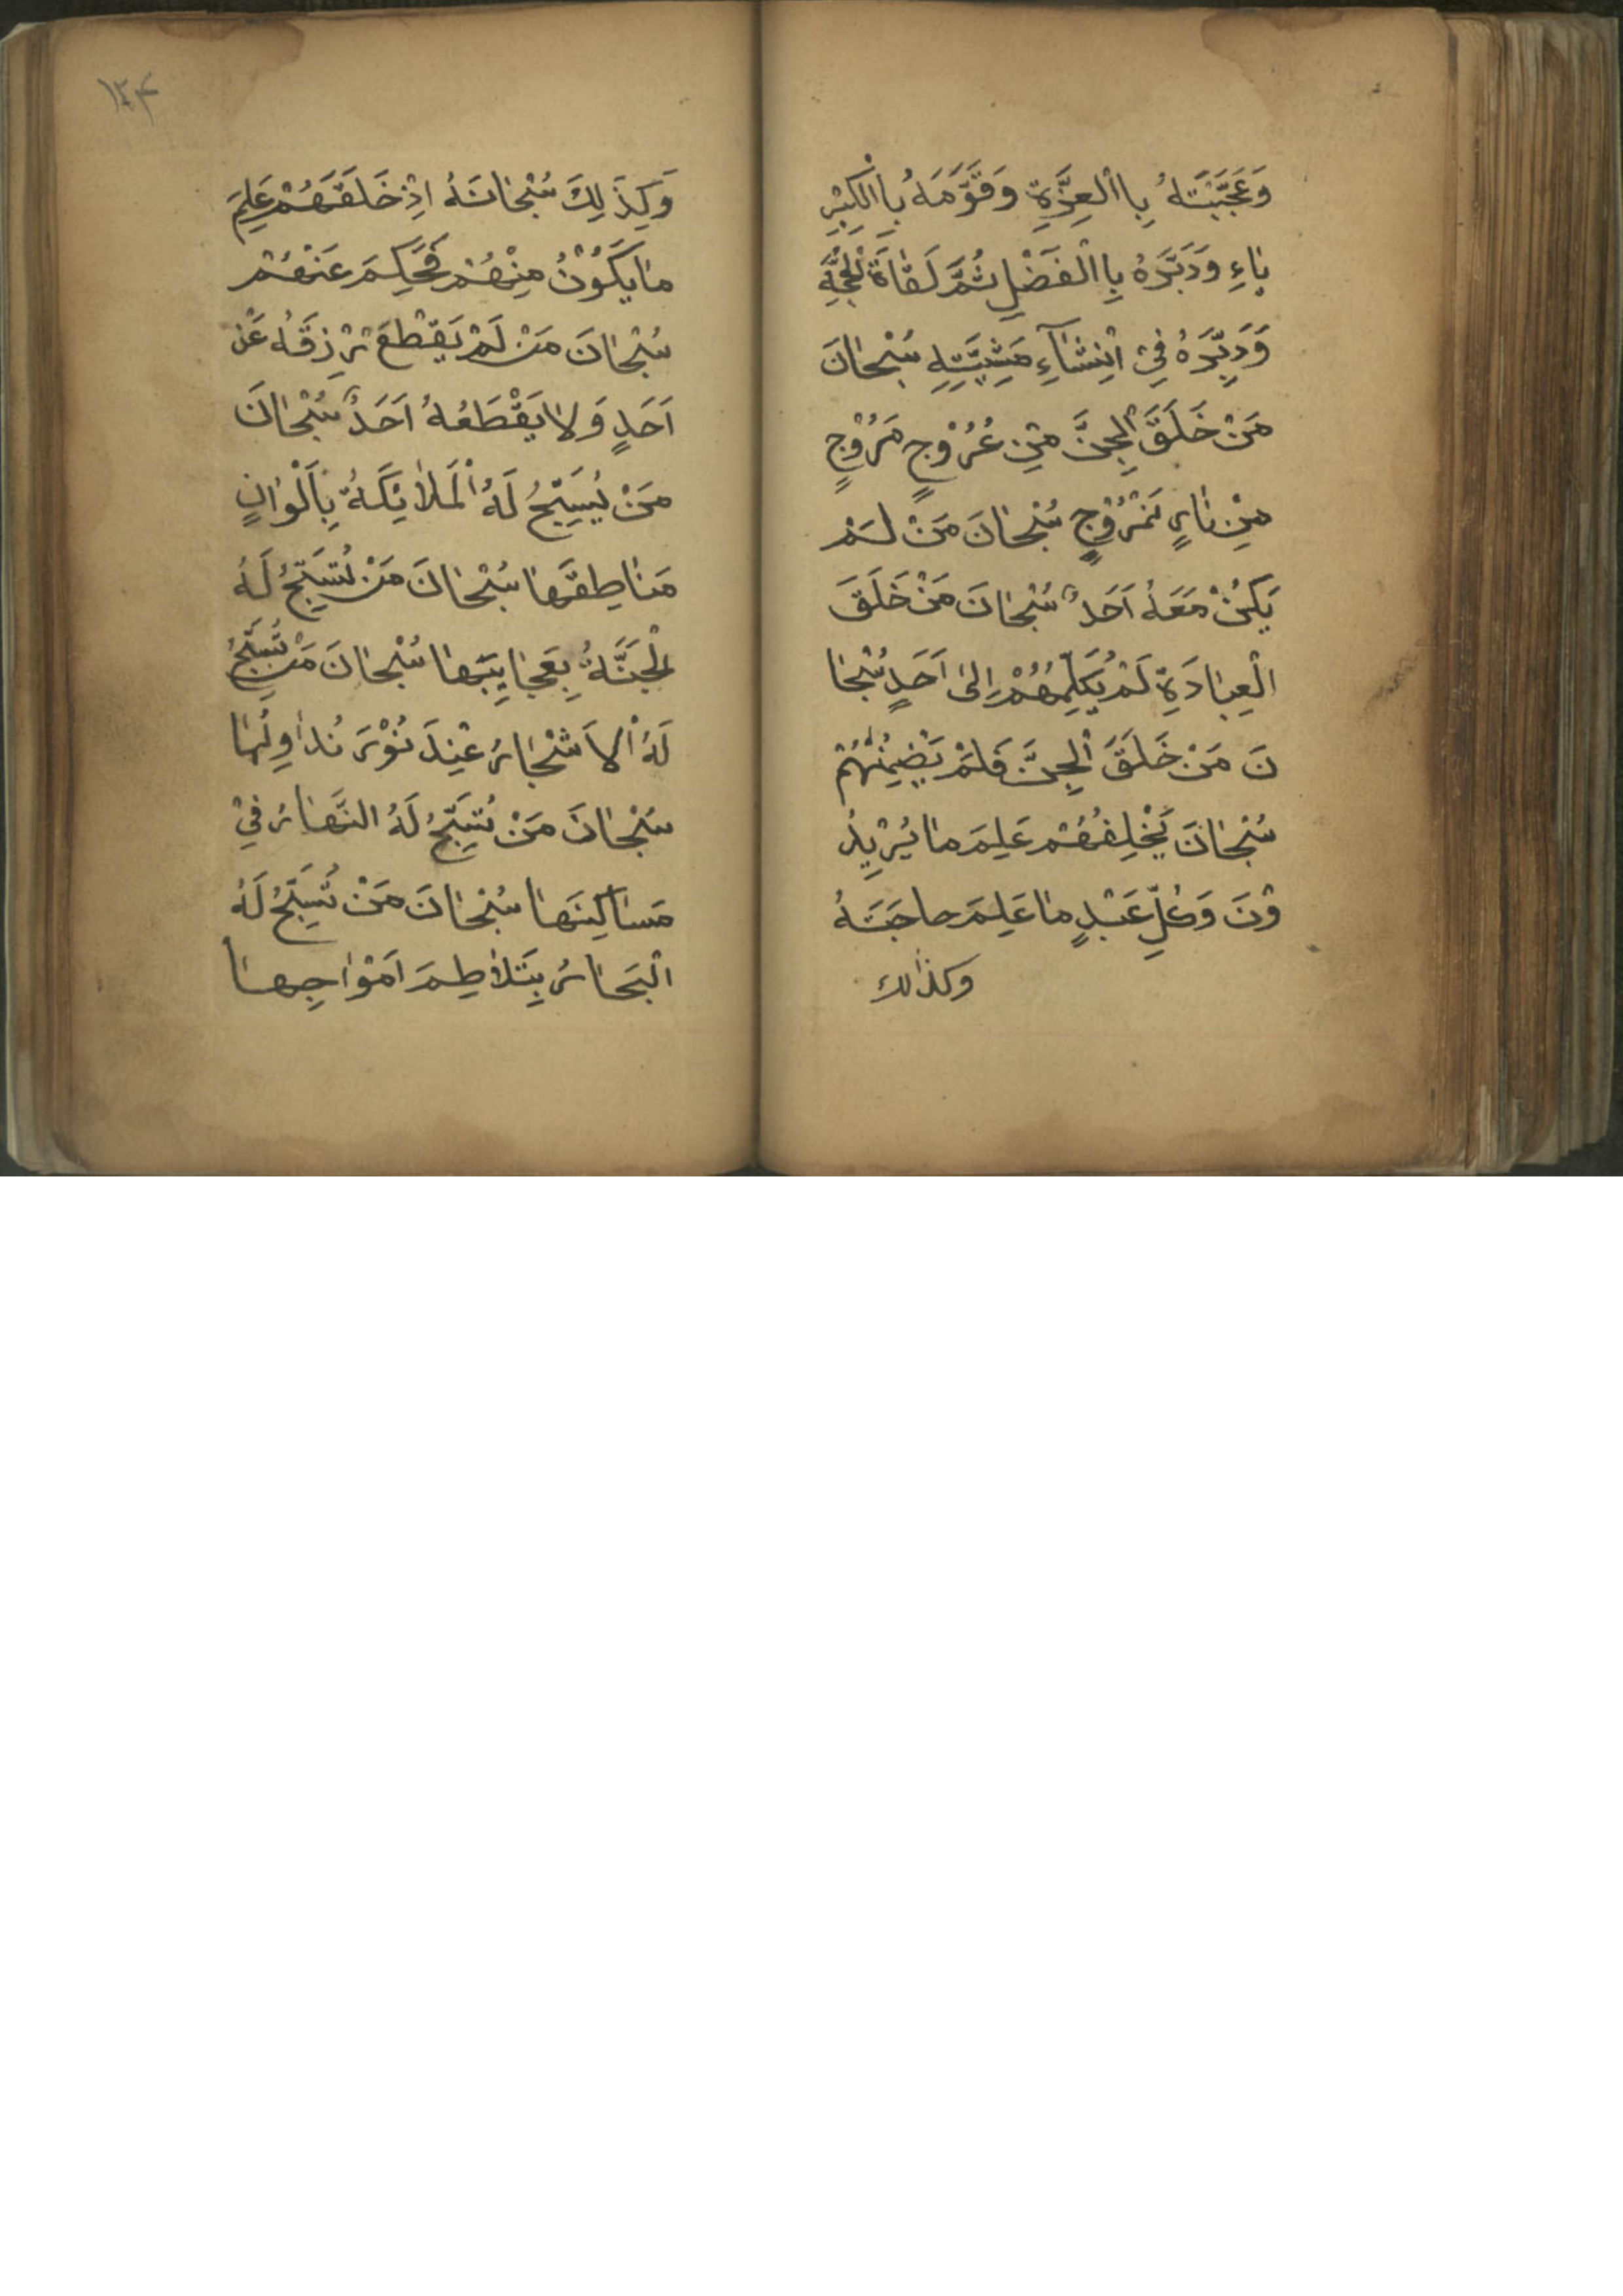 وَعَجَّبَتَهُ بِاالْعِزَّةِ وَقَوَّمَهُ بِاالْكِبْرِ
يٰاءِ وَدَبَّرَهُ بِاالْفَضْلِ ثُمَّ لَقٰاهَ الْحُجَّةِ
وَدَبَّرَهُ فِيْ اِنْشٰآءِ مَشِيَّتِهِ سُبْحٰانَ
مَنْ خَلَقَ الْجِنَّ مِنْ عُرُوْجٍ مَرُوْجٍ
مِنْ نٰارٍ تَمْرُوْجٍ سُبْحٰانَ مَنْ لَمْ
يَكُنْ مَعَهُ اَحَدٌ سُبْحٰانَ مَنْ خَلَقَ
الْعِبٰادَةِ لَمْ يُكَلِّمُهُمْ اِلٰى اَحَدٍ سُبْحٰا
نَ مَنْ خَلَقَ الْجِنَّ فَلَمْ
سُبْحٰانَ يُخْلِفُهُمْ عَلِمَ مٰا يُرِيْدُ
وْنَ وَكُلِّ عَبْدٍ مٰا عَلِمَ حاجَتَهُ
وكذالك
١٢۴
وَكَذٰلِكَ سُبْحٰانَهُ اِذْ خَلَقَهُمْ عَلِمَ
مٰا يَكُوْنُ مِنْهُمْ فَحَكِمَ عَنْهُمْ
سُبْحٰانَ مَنْ لَمْ يَقْطَعْ رِزْقَهُ عَنْ
اَحَدٍ وَلا يَقْطَعُهُ اَحَدٌ سُبْحٰانَ
مَنْ يُسَبِّحُ لَهُ الْمَلٰائِكَةُ بِاَلْوٰانٍ
مَنٰاطِقَهٰا سُبْحٰانَ مَنْ تُسَبِّحُ لَهُ
الْجَنَّةُ بِعَجٰايِبَهٰا سُبْحٰانَ مَنْ تُسَبِّحُ
لَهُ الْاَشْجٰارُ عِنْدَ نُوْرَ نُدٰاوِلُهٰا
سُبْحٰانَ مَنْ تُسَبِّحُ لَهُ النَّهٰارُ فِيْ
مَسٰاكِنَهٰا سُبْحٰانَ مَنْ تُسَبِّحُ لَهُ
الْبَحٰارُ بِتَلٰاطِمَ اَمْوٰاجِهٰا